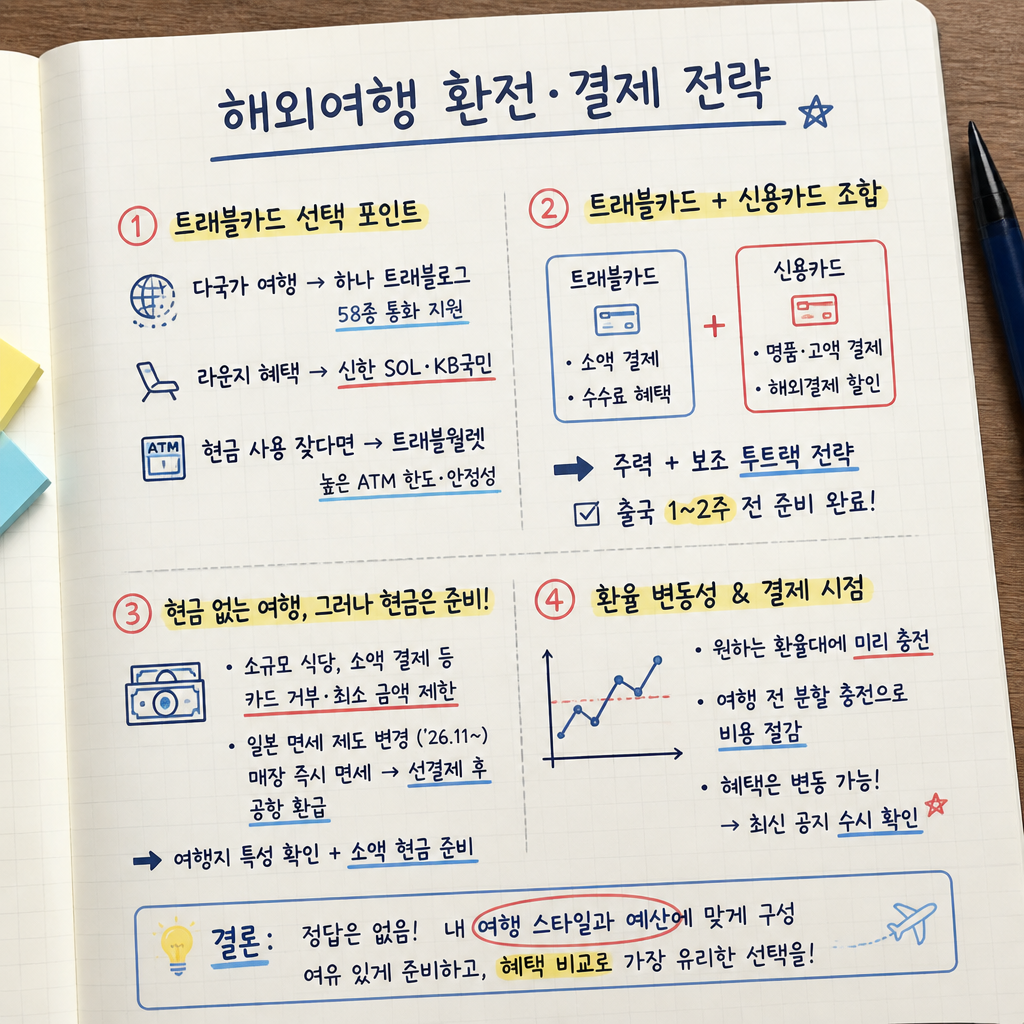 해외여행 환전·결제 전략
① 트래블카드 선택 포인트
다국가 여행 → 하나 트래블로그
58종 통화 지원
라운지 혜택 → 신한 SOL·KB국민
ATM
현금 사용 잦다면 → 트래블월렛
높은 ATM 한도·안정성
② 트래블카드 + 신용카드 조합
트래블카드
• 소액 결제
• 수수료 혜택
+
신용카드
• 명품·고액 결제
• 해외결제 할인
➡ 주력 + 보조 투트랙 전략
☑ 출국 1~2주 전 준비 완료!
③ 현금 없는 여행, 그러나 현금은 준비!
• 소규모 식당, 소액 결제 등
카드 거부·최소 금액 제한
• 일본 면세 제도 변경 ('26.11~)
매장 즉시 면세 → 선결제 후
공항 환급
➡ 여행지 특성 확인 + 소액 현금 준비
④ 환율 변동성 & 결제 시점
• 원하는 환율대에 미리 충전
• 여행 전 분할 충전으로
비용 절감
• 혜택은 변동 가능!
→ 최신 공지 수시 확인
결론: 정답은 없음! 내 여행 스타일과 예산에 맞게 구성
여유 있게 준비하고, 혜택 비교로 가장 유리한 선택을!